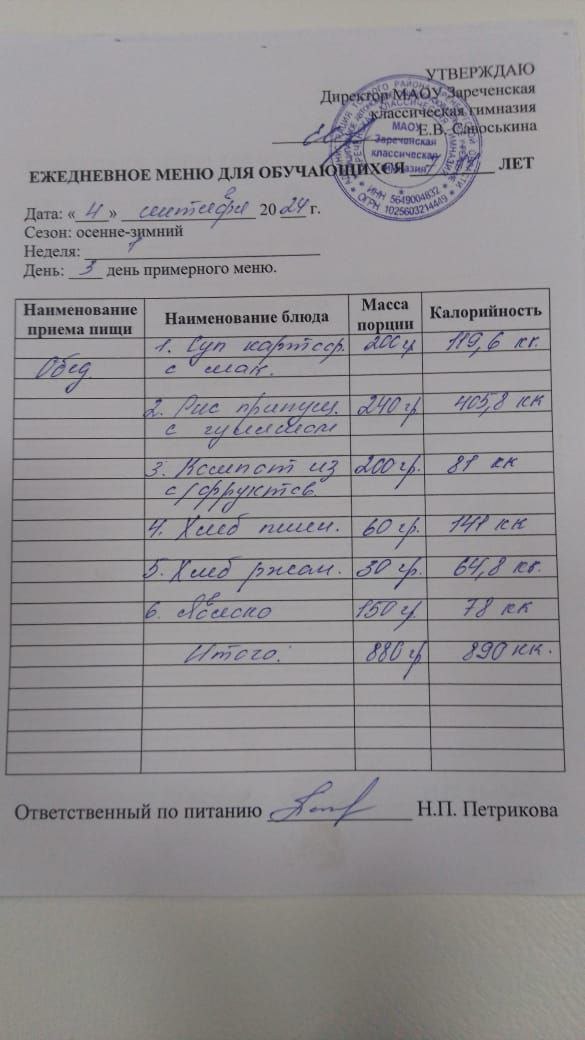 УТВЕРЖДАЮ
Директор МАОУ Зареченская
классическая гимназия
Е.В. Савоськина
МАОУ
Зареченская
классическая
гимназия
ИНН 5649004832
ОГРН 1025603214449
ЕЖЕДНЕВНОЕ МЕНЮ ДЛЯ ОБУЧАЮЩИХСЯ ЛЕТ
Дата: «4» сентября 2024 г.
Сезон: осенне-зимний
Неделя: 1
День: 3 день примерного меню.
Наименование приема пищи Наименование блюда Масса порции Калорийность
Обед 1. Суп картоф. 200 гр 119,6 кк.
с мак.
2. Рис припущ. 240 гр 405,8 кк
с гуляшом
3. Компот из 200 гр. 81 кк
с/фруктов.
4. Хлеб пшен. 60 гр. 141 кк
5. Хлеб ржан. 30 гр. 64,8 кк.
6. Яблоко 150 гр. 78 кк
Итого: 880 гр 890 кк.
Ответственный по питанию Н.П. Петрикова